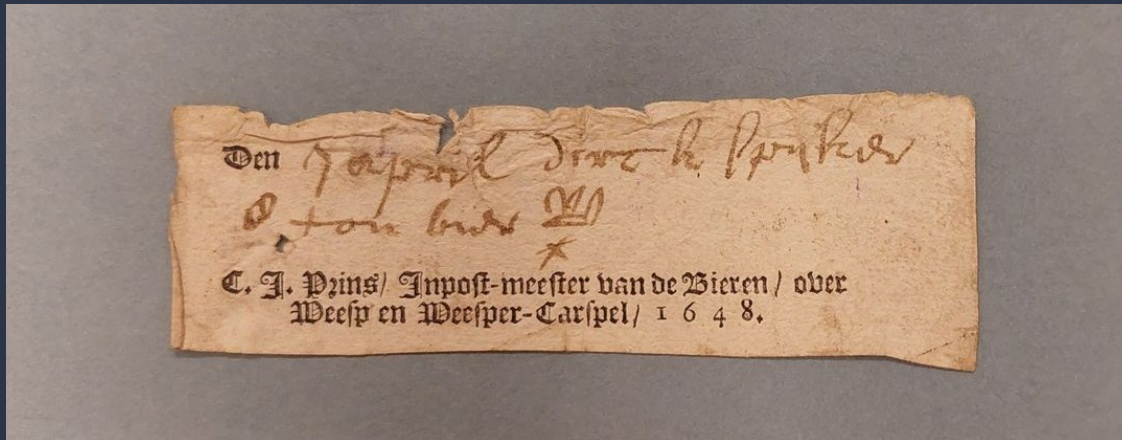 Den 7 april dirc
8 ton bier
C. J. Prins/ Inpost-meester van de Bieren/ over
Weesp en Weesper-Carspel/ 1 6 4 8.